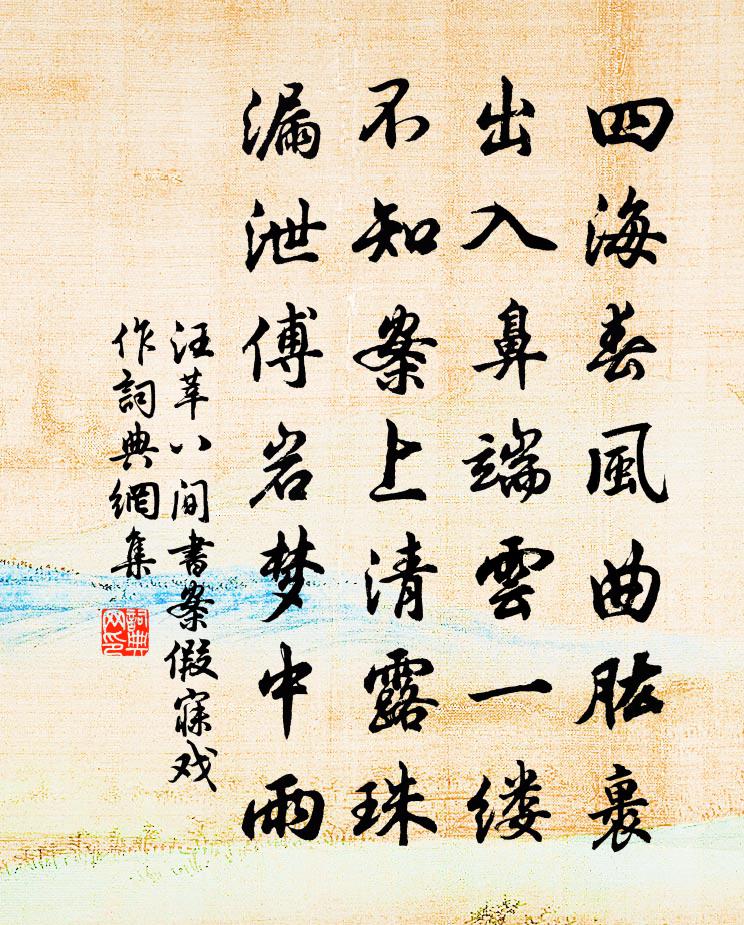 四海春風曲肱裏
出入鼻端雲一缕
不知案上清露珠
漏泄傅岩梦中雨
汪莘八间書案假寐戏
作詞典網集
詞典
网印